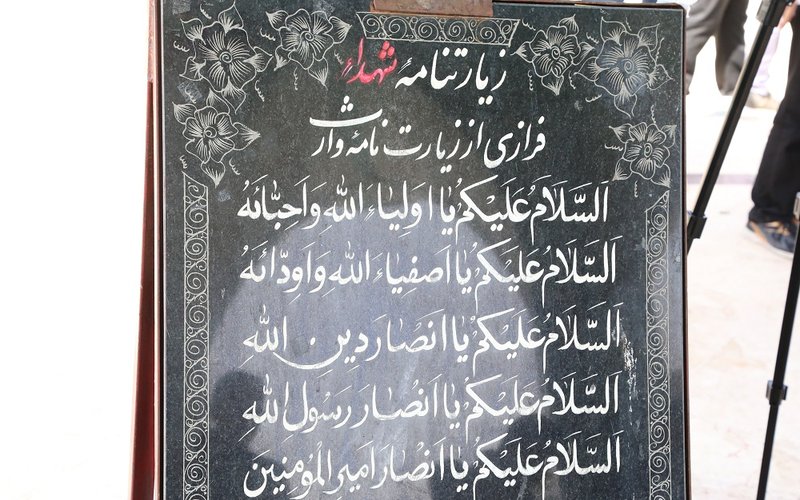 زیارتنامهٔ شهداء
فرازی از زیارت نامهٔ وارث
اَلسَّلامُ عَلَیْکُمْ یا اَوْلِیاءَ اللهِ وَ اَحِبّائَهُ
اَلسَّلامُ عَلَیْکُمْ یا اَصْفِیاءَ اللهِ وَ اَوِدّائَهُ
اَلسَّلامُ عَلَیْکُمْ یا اَنْصارَ دینِ اللهِ
اَلسَّلامُ عَلَیْکُمْ یا اَنْصارَ رَسُولِ اللهِ
اَلسَّلامُ عَلَیْکُمْ یا اَنْصارَ اَمیرِ الْمُؤمِنینَ